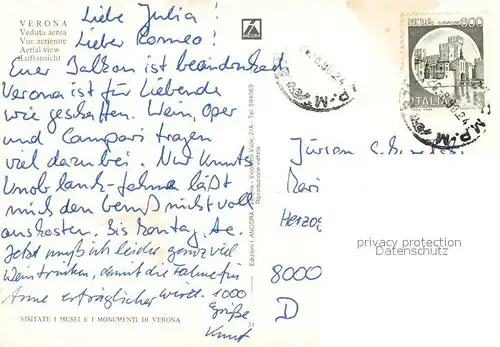 VERONA
Veduta aerea
Vue aerienne
Aerial view
Luftansicht
Liebe Julia!
Lieber Romeo!
Euer Balkon ist beeindruckend
Verona ist für Liebende
wie geschaffen. Wein, Oper
und Campari tragen
viel dazu bei. Nur Knuts
Knoblauch-Fahne läßt
mich den nicht voll
auskosten. Bis Montag,
Jetzt muß ich leider ganz viel
Wein trinken, damit die Fahne für
Anne erträglicher wird. 1000
Grüße
Knut
VISITATE I MUSEI E I MONUMENTI DI VERONA
31
Riproduzione vietata
600
ITALIA
P.M
Jürgen
Mari
Herzog
8000
D
privacy protection
Datenschutz